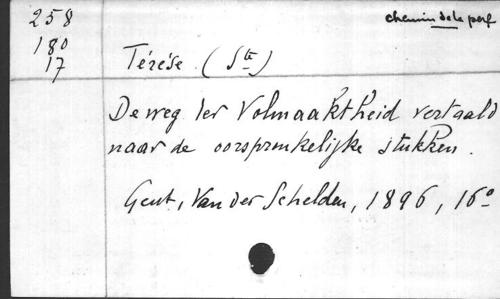 258
chemin de la perf
180
17
Térèse (Ste)
De weg ter Volmaaktheid vertaald
naar de oorspronkelijke stukken.
Gent, Van der Schelden, 1896, 16°